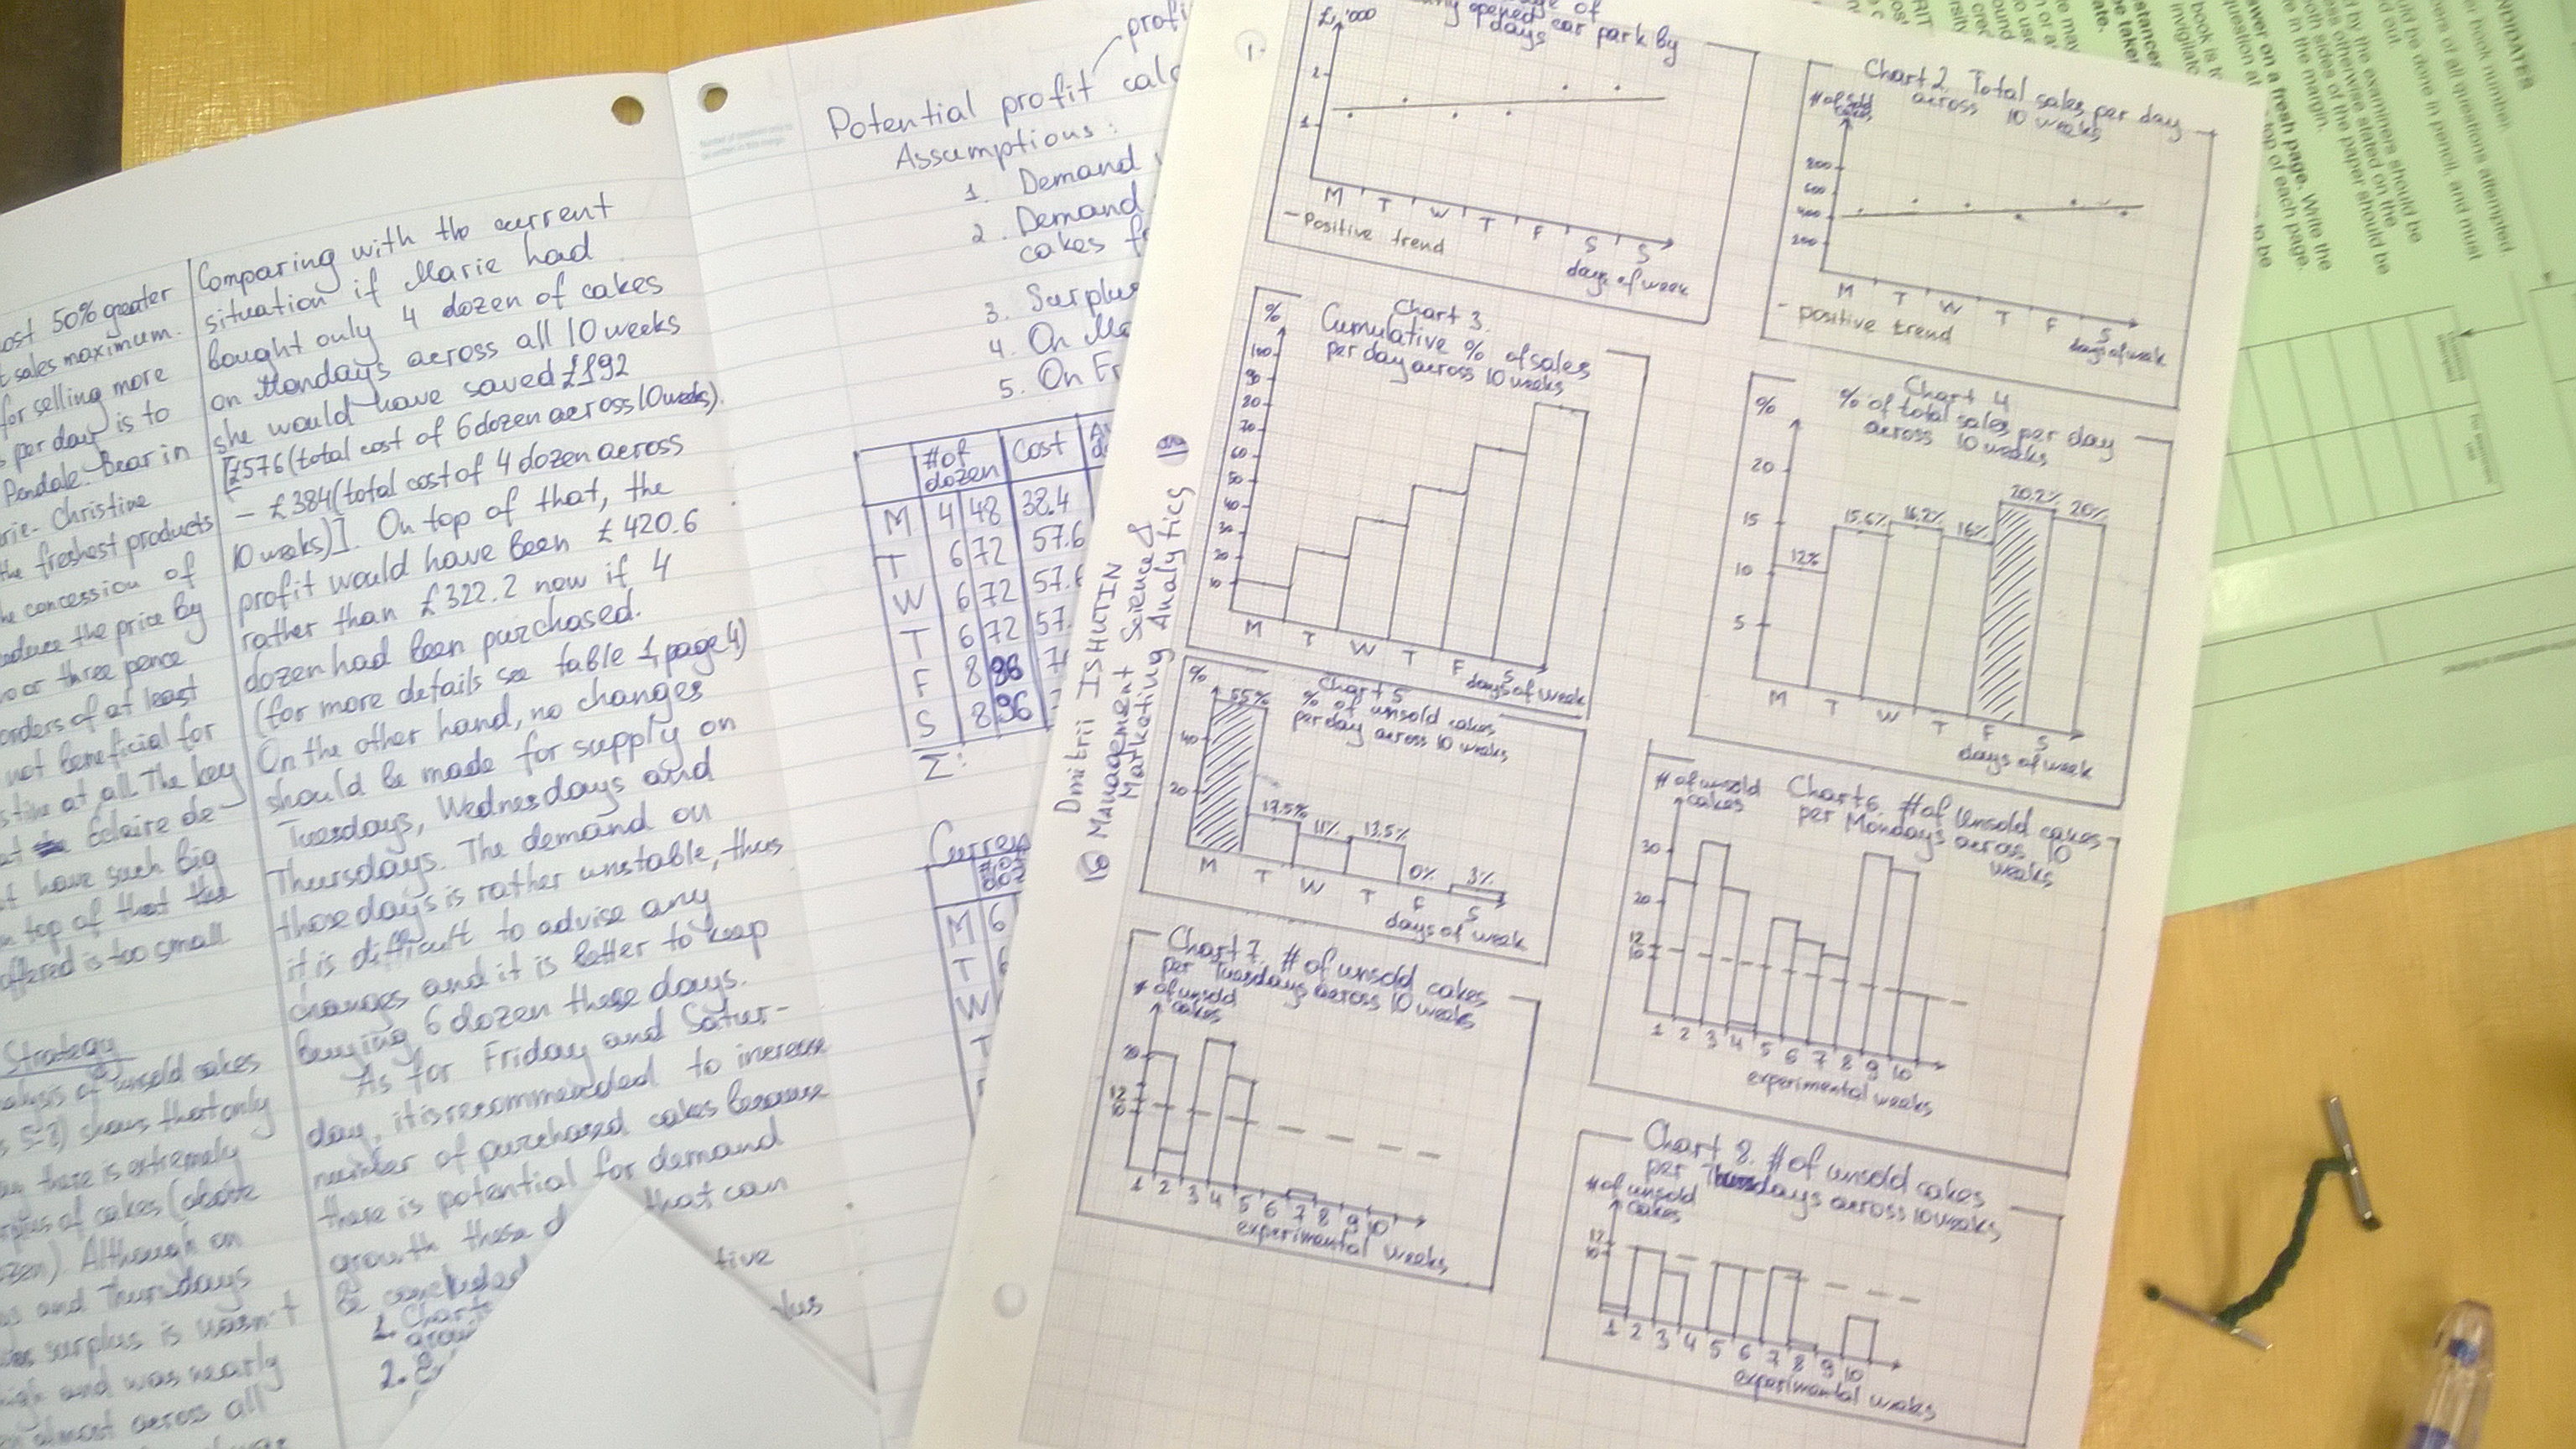 ost 50% greater
t sales maximum.
for selling more
per day is to
Pendale. Bear in
rie-Christine
the freshest products
he concession of
reduce the price by
wo or three pence
orders of at least
not beneficial for
stine at all. The key
at eclaire de-
t have such big
n top of that the
offered is too small
Strategy
alysis of unsold cakes
s 5-8) shows that only
there is extremely
rplus of cakes (above
zen). Although on
and Thursdays
surplus is wasn't
high and was nearly
almost across all
Comparing with the current
situation if Marie had
bought only 4 dozen of cakes
on Mondays across all 10 weeks
she would have saved £192
[£576 (total cost of 6 dozen across 10 weeks)
- £384 (total cost of 4 dozen across
10 weeks)]. On top of that, the
profit would have been £420.6
rather than £322.2 now if 4
dozen had been purchased.
(for more details see table 1, page 4)
On the other hand, no changes
should be made for supply on
Tuesdays, Wednesdays and
Thursdays. The demand on
those days is rather unstable, thus
it is difficult to advise any
changes and it is better to keep
buying 6 dozen these days.
As for Friday and Satur-
day, it is recommended to increase
number of purchased cakes because
there is potential for demand
growth these d that can
be concluded tive
1. Charts plus
grow
2.
profi
Potential profit calc
Assumptions:
1. Demand
2. Demand
cakes f
3. Surplus
4. On Mo
5. On Fr
# of dozen Cost
M 4 48 38.4
T 6 72 57.6
W 6 72 57.6
T 6 72 57.
F 8 96 7
S 8 96
Σ:
Curren
# of
doz
M 6
T 6
W
T
Dmitrii ISHUTIN
Management Science &
Marketing Analytics
1.
£, '000
opened car park by
days
2
1
M T W T F S S
days of week
- Positive trend
Chart 2. Total sales per day
across 10 weeks
# of sold
cakes
800
600
400
200
M T W T F S
days of week
- positive trend
Chart 3.
Cumulative % of sales
per day across 10 weeks
%
100
90
80
70
60
50
40
30
20
10
M T W T F S
days of week
Chart 4
% of total sales per day
across 10 weeks
%
20
15
10
5
12% 15.6% 16.2% 16% 20.2% 20%
M T W T F S
days of week
Chart 5
% of unsold cakes
per day across 10 weeks
%
40
20
55% 17.5% 11% 13.5% 0% 3%
M T W T F S
days of week
Chart 6. # of unsold cakes
per Mondays across 10
weeks
# of unsold
cakes
30
20
12
10
1 2 3 4 5 6 7 8 9 10
experimental weeks
Chart 7. # of unsold cakes
per Tuesdays across 10 weeks
# of unsold
cakes
20
12
10
1 2 3 4 5 6 7 8 9 10
experimental weeks
Chart 8. # of unsold cakes
per Thursdays across 10 weeks
# of unsold
cakes
12
10
1 2 3 4 5 6 7 8 9 10
experimental weeks
NDIDATES
er book number.
ers of all questions attempted
ld be done in pencil, and must
d out.
by the examiners should be
ess otherwise stated on the
oth sides of the paper should be
e in the margin.
wer on a fresh page. Write the
question at top of each page.